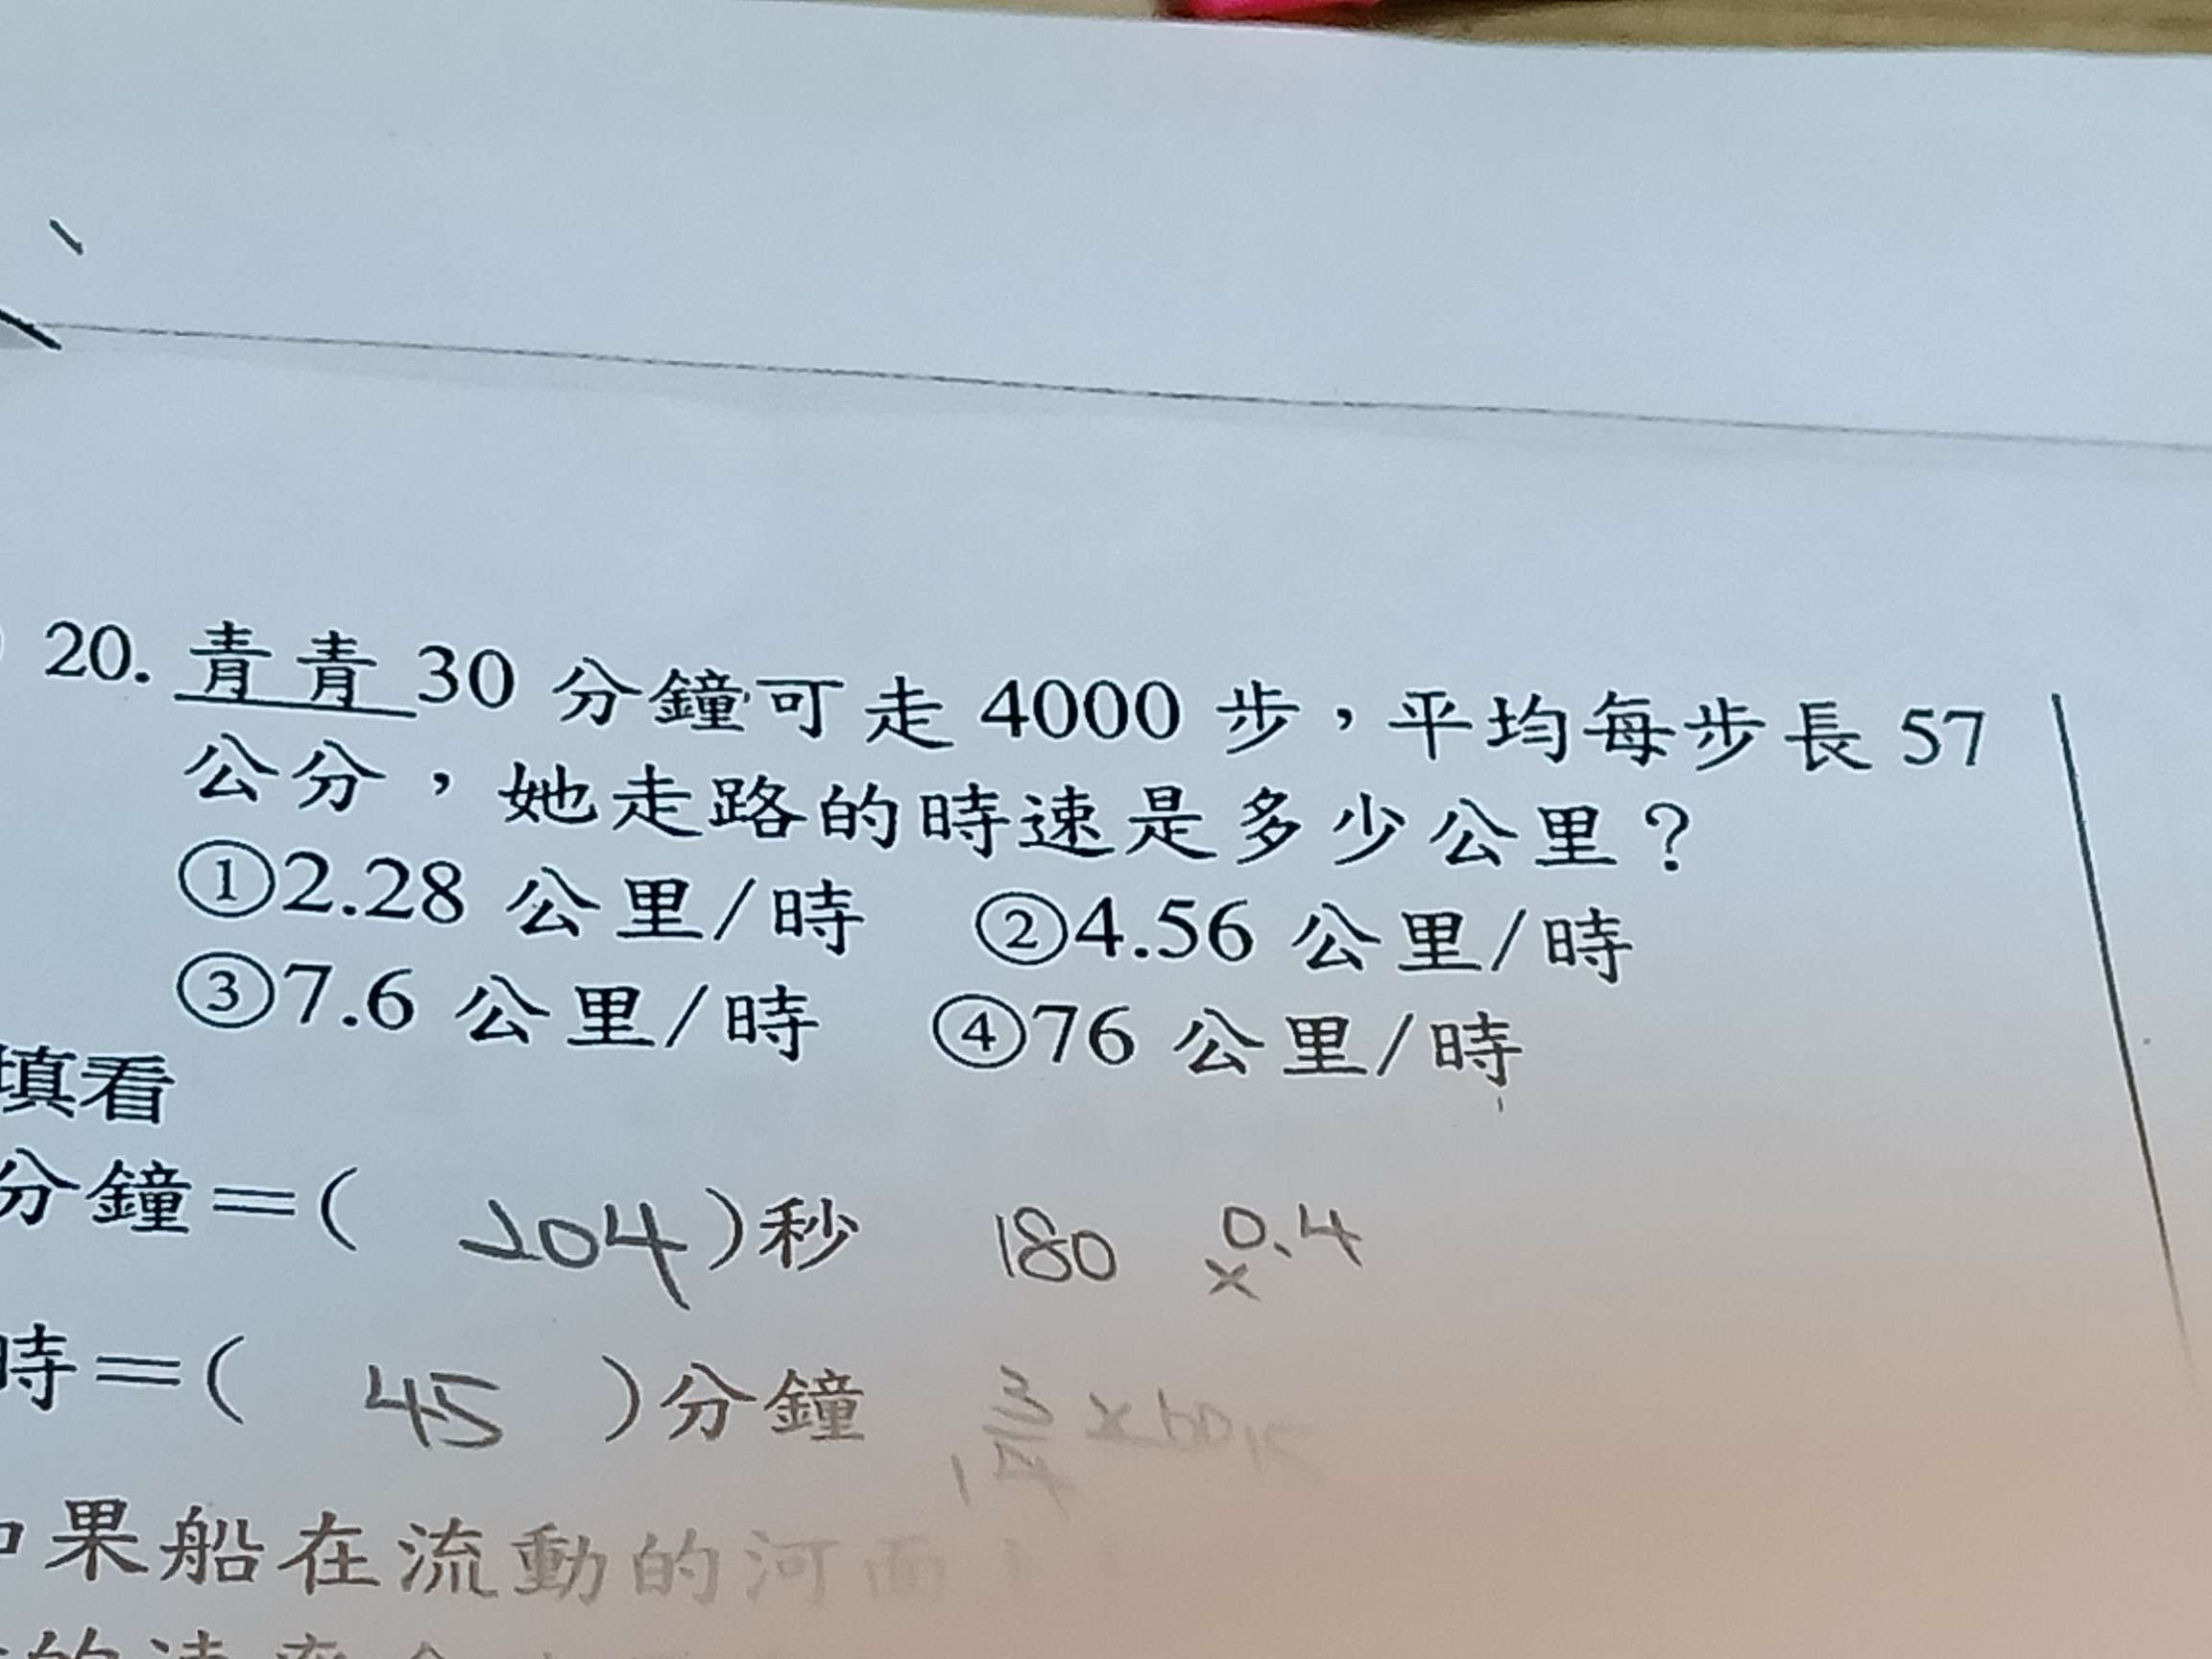 20. 青青 30 分鐘可走 4000 步，平均每步長 57
公分，她走路的時速是多少公里？
①2.28 公里/時 ②4.56 公里/時
③7.6 公里/時 ④76 公里/時
填看
分鐘＝( 204 )秒 180 × 0.4
時＝( 45 )分鐘 3/4 × 60
果船在流動的河面
的速度